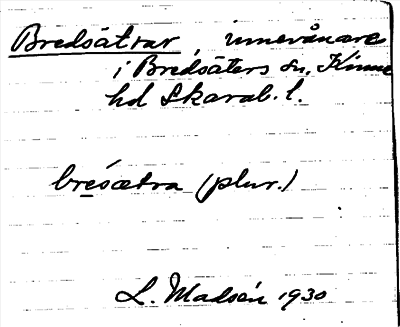 Bredsätrar, innevånare
i Bredsäters sn, Kinne
hd Skarab. l.
bresætra (plur.)
L. Madsén 1930